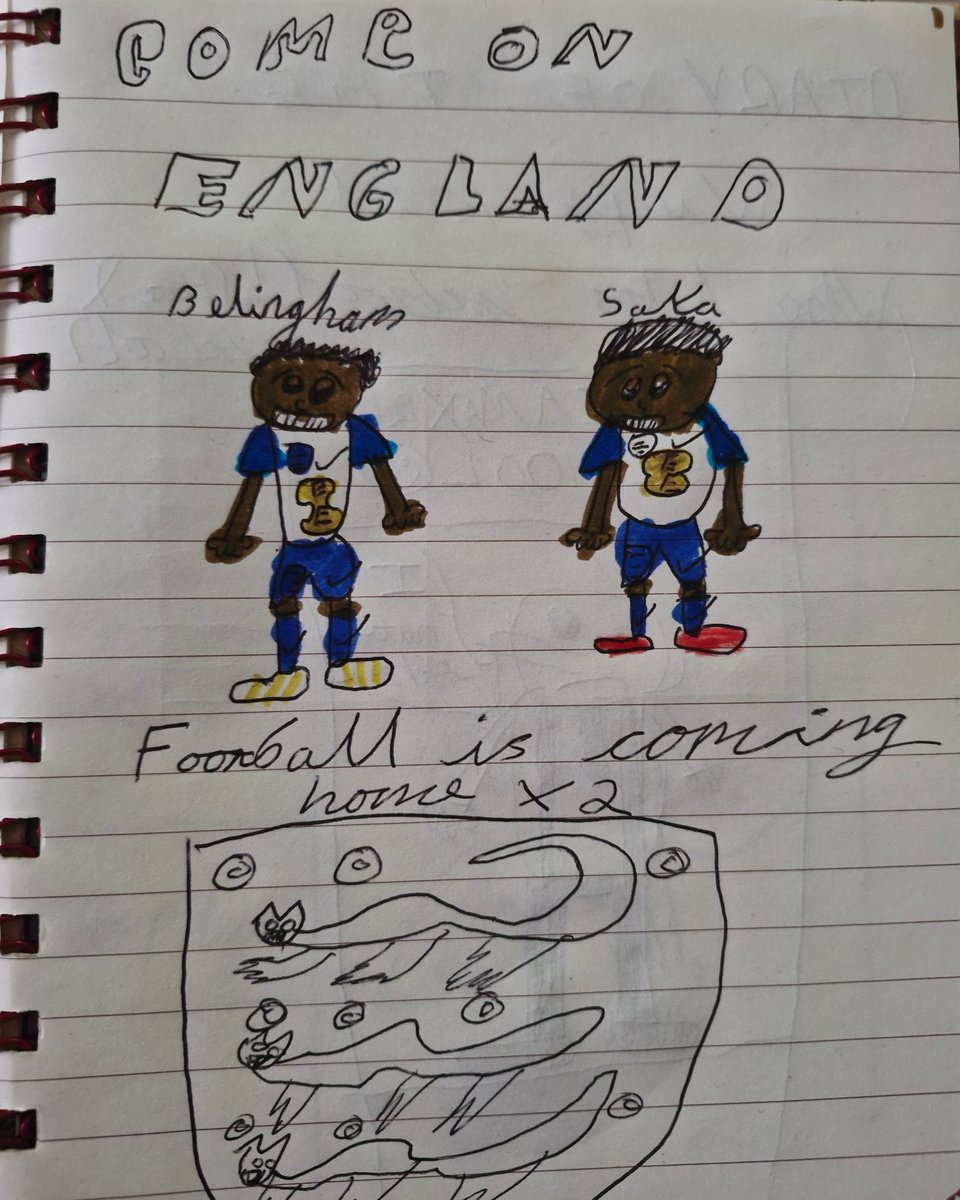 COME ON
ENGLAND
Belingham
Saka
Foorball is coming
home x 2